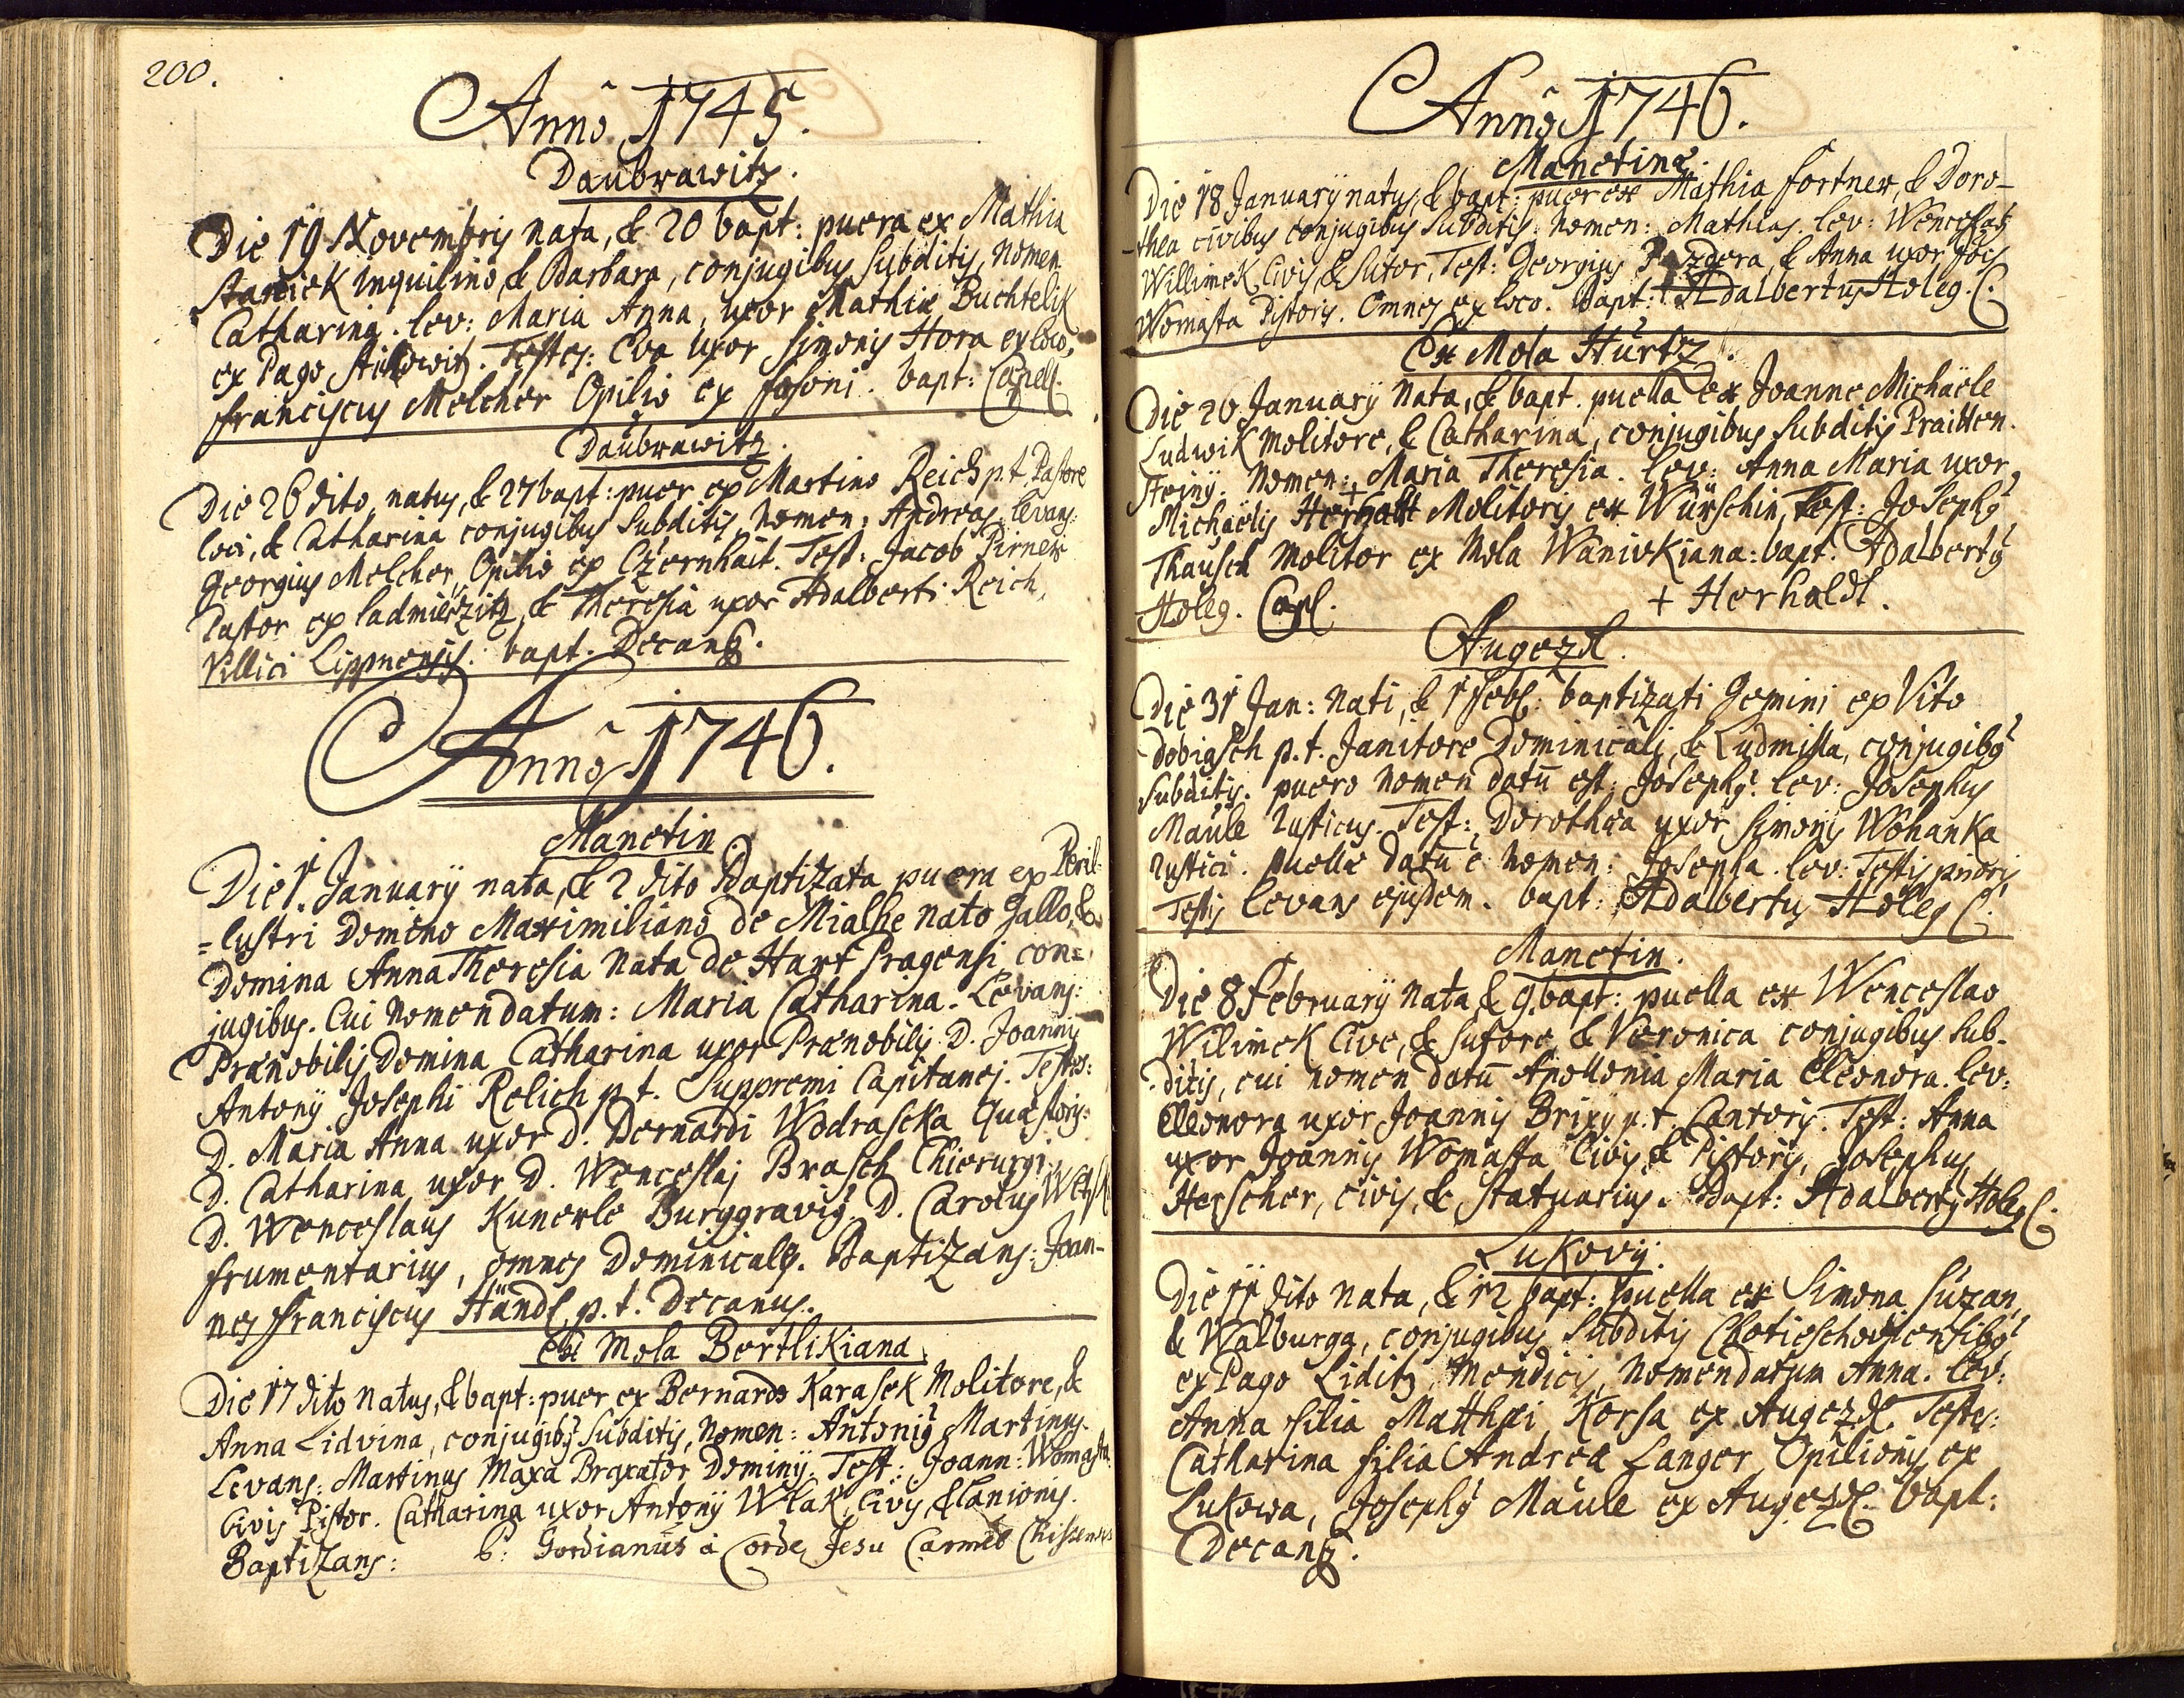 200.
Anno 1745.
Daubrawitz.
Die 19 Novembris nata, & 20 bapt: puera ex Mathia
Staniek inquilino & Barbara, conjugibus subditis, nomen
Catharina. lev: Maria Anna, uxor Mathiæ Buchtelik
ex Pago. Testes: Eva uxor Simonis Hora ex loco,
Franciscus Melcher Opilio ex. bapt: Capell.
Daubrawitz.
Die 26 dito natus, & 27 bapt: puer ex Martino Reich p.t. Pastore
loci, & Catharina conjugibus subditis, nomen: Andreas. levans:
Georgius Melcher, Opilio ex Czernhait. Test: Jacob Pirner
Pastor ex Ladmierzitz, & Theresia uxor Adalberti Reich,
Villici Lippnensis. bapt. Decanus.
Anno 1746.
Manetin
Die 1. January nata, & 2 dito Baptizata puera ex Peril-
=lustri Domino Maximiliano de Mialhe nato Gallo, &
Domina Anna Theresia Nata de Hart Pragensi con=
jugibus. Cui nomen datum: Maria Catharina. Levans:
Prænobilis Domina Catharina uxor Prænobilis D. Joannis
Antony Josephi Relich p.t. Suppremi Capitanej. Testes:
D. Maria Anna uxor D. Bernardi Wodraseka Quæstoris:
D. Catharina uxor D. Wenceslaj Brasch Chierurgi,
D. Wenceslaus Kunerle Burggravig, D. Carolus
frumentarius, omnes Dominicales. Baptizans: Joan-
nes Franciscus Händl p.t. Decanus.
Ex Mola Bertlikiana.
Die 17 dito natus, & bapt: puer ex Bernardo Karasek Molitore, &
Anna Lidvina, conjugibg subditis, nomen: Antonig Martinus.
Levans: Martinus Maxa Braxator Dominij. Test: Joann: Womasta
Civis Pistor. Catharina uxor Antony Wlak, Civis & Lanionis.
Baptizans: P: Gordianus à Corde Jesu Carmel
Anno 1746.
Manetinæ.
Die 18 January natus, & bapt: puer ex Mathia Fortner, & Doro-
-thea civibus conjugibus subditis. nomen: Mathias. lev: Wenceslaus
Willimek Civis & Sutor, Test: Georgius Pazdera, & Anna uxor Jois
Womasta Pistoris. Omnes ex loco. bapt: Adalbertus Holeg. C.
Ex Mola Hurtz.
Die 20 January nata, & bapt. puella ex Joanne Michaële
Ludwik Molitore, & Catharina, conjugibus subditis Praitten.
steinÿ. nomen: Maria Theresia. lev: Anna Maria uxor
Michaëlis + Herhalt Molitoris ex Würschin, Test: Josephg
Thausch Molitor ex Mola Wanivkiana: bapt: Adalbertg
Holeg. Capl. + Herholdt.
Augezd.
Die 31 Jan: nati, & 1 Feb: baptizati Gemini ex Vito
Dobiasch p.t. Janitore Dominicali, & Ludmilla, conjugibg
subditis. puero nomen datū est: Josephg. lev: Josephus
Maule rusticus. Test: Dorothea uxor Simonis Wohanka
rustici. Puellæ datū ē nomen: Josepha. lev: Testis prioris
Testis levans ejusdem. bapt: Adalbertus Holeg C.
Manetin.
Die 8 February nata & 9. bapt: puella ex Wenceslao
Wilimek Cive, & sutore & Veronica conjugibus sub-
ditis, cui nomen datū Apollonia Maria Eleonora. lev:
Eleonora uxor Joannis Brixy p.t. Cantoris. Test: Anna
uxor Joannis Womasta Civis & Pistoris, Josephus
Herscher, civis, & statuarius. Bapt: Adalbertg Holeg C.
Lukovÿ.
Die 11 dito nata, & 12 bapt: puella ex Simona Suzan,
& Walburga, conjugibus subditis Chotieschoviensibg
ex Pago Liditz, Mendicis, nomen datum Anna. lev:
Anna filia Matthæi Korsa ex Augezd. Testes:
Catharina filia Andreæ Langer Opilionis ex
Lukowa, Josephg Maule ex Augezd. bapt:
Decang.